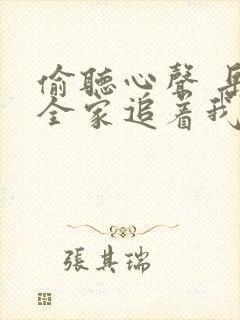 偷聽心聲
全家追着我
張其瑞